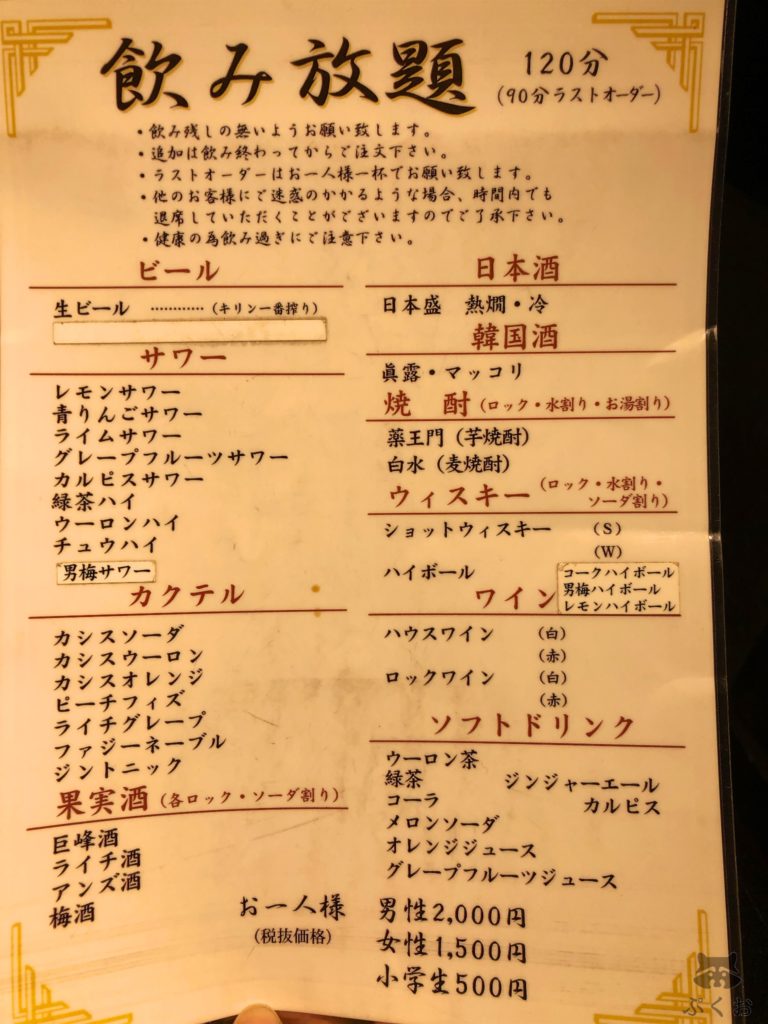 飲み放題 120分
(90分ラストオーダー)
・飲み残しの無いようお願い致します。
・追加は飲み終わってからご注文下さい。
・ラストオーダーはお一人様一杯でお願い致します。
・他のお客様にご迷惑のかかるような場合、時間内でも
退席していただくことがございますのでご了承下さい。
・健康の為飲み過ぎにご注意下さい。
ビール
生ビール …………(キリン一番搾り)
サワー
レモンサワー
青りんごサワー
ライムサワー
グレープフルーツサワー
カルピスサワー
緑茶ハイ
ウーロンハイ
チュウハイ
男梅サワー
カクテル
カシスソーダ
カシスウーロン
カシスオレンジ
ピーチフィズ
ライチグレープ
ファジーネーブル
ジントニック
果実酒(各ロック・ソーダ割り)
巨峰酒
ライチ酒
アンズ酒
梅酒
日本酒
日本盛 熱燗・冷
韓国酒
眞露・マッコリ
焼 酎(ロック・水割り・お湯割り)
薬王門(芋焼酎)
白水(麦焼酎)
ウィスキー(ロック・水割り・
ソーダ割り)
ショットウィスキー (S)
(W)
ハイボール
コークハイボール
男梅ハイボール
レモンハイボール
ワイン
ハウスワイン (白)
(赤)
ロックワイン (白)
(赤)
ソフトドリンク
ウーロン茶
緑茶 ジンジャーエール
コーラ カルピス
メロンソーダ
オレンジジュース
グレープフルーツジュース
お一人様 男性2,000円
(税抜価格) 女性1,500円
小学生500円
ぷくお